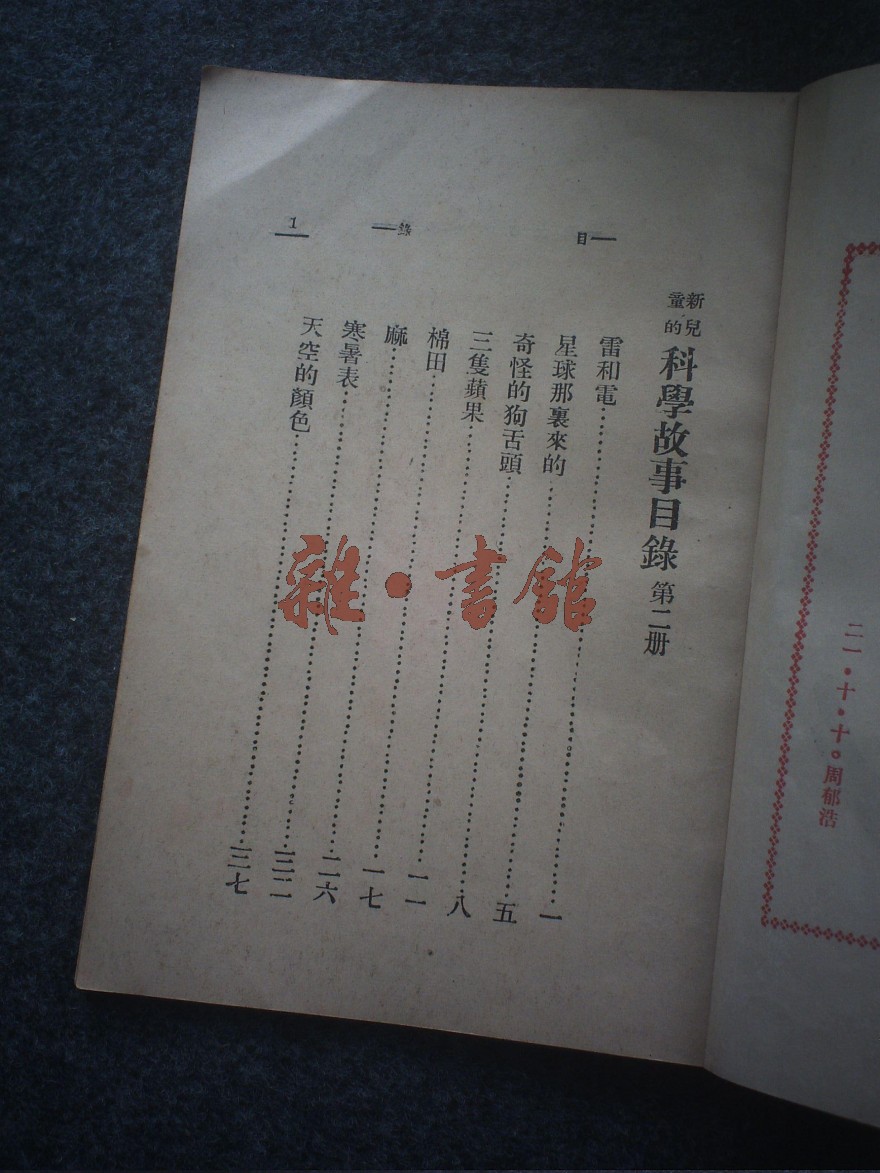 二一•十•十。周郁浩
目錄 1
新兒童的 科學故事目錄 第二册
雷和電……一
星球那裏來的……五
奇怪的狗舌頭……八
三隻蘋果……一一
棉田……一七
麻……二六
寒暑表……三二
天空的顏色……三七
雜•書館